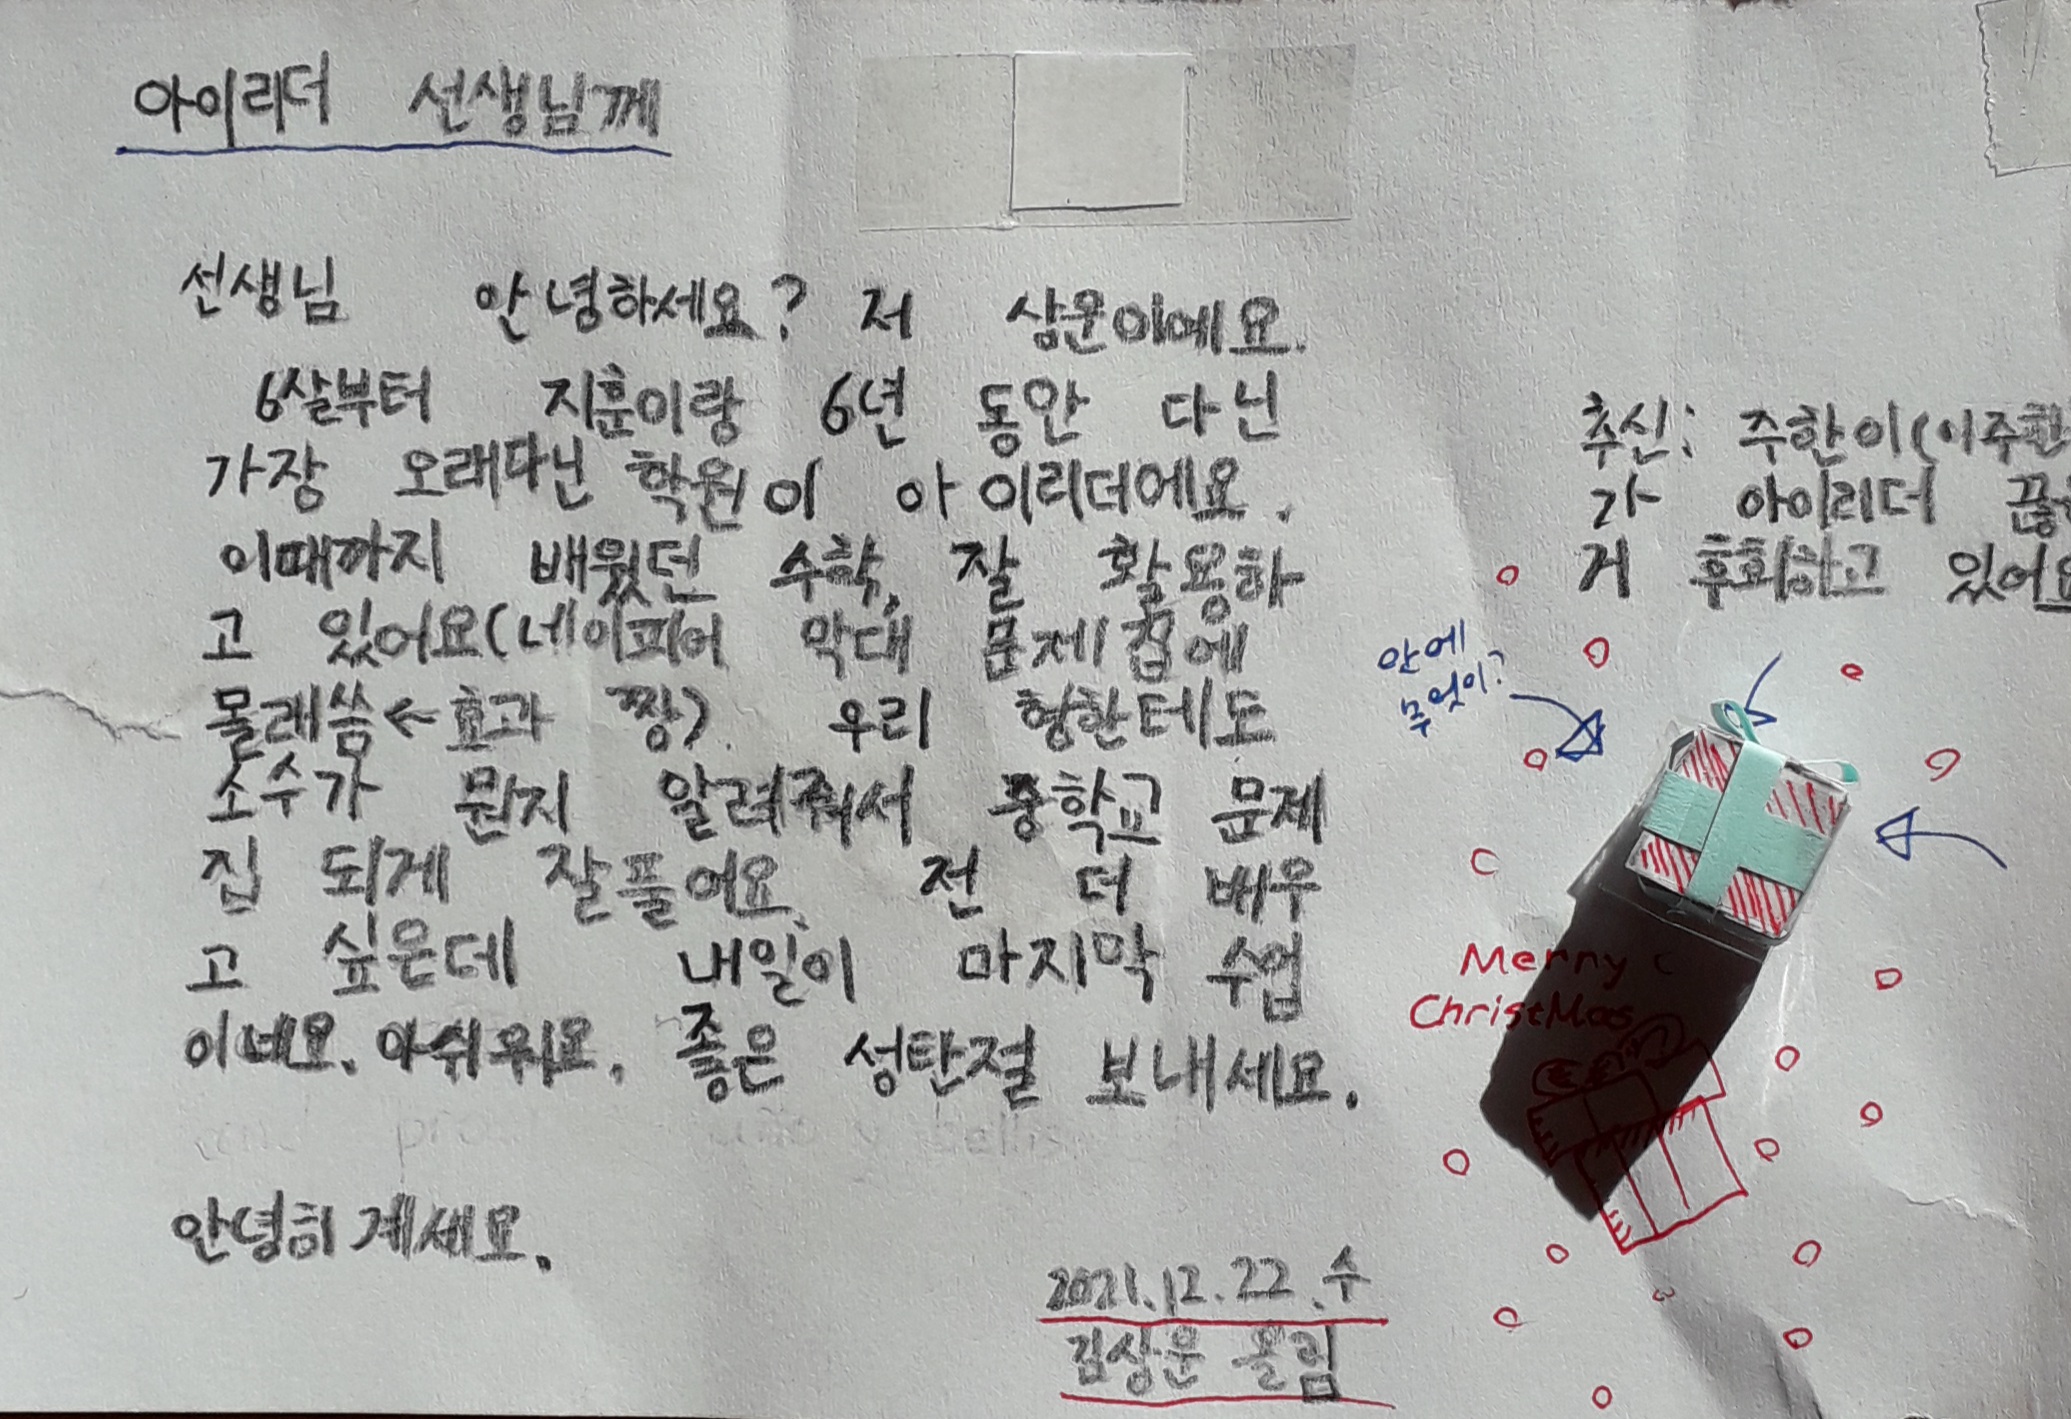 아이리더 선생님께
선생님 안녕하세요? 저 상운이에요.
6살부터 지훈이랑 6년 동안 다닌
가장 오래다닌 학원이 아이리더에요.
이때까지 배웠던 수학, 잘 활용하
고 있어요(네이피어 막대 문제집에
몰래씀←효과 짱). 우리 형한테도
소수가 뭔지 알려줘서 중학교 문제
집 되게 잘풀어요. 전 더 배우
고 싶은데 내일이 마지막 수업
이네요. 아쉬워요. 좋은 성탄절 보내세요.
안녕히 계세요.
2021.12.22.수
김상운 올림
추신: 주한이(이주한
가 아이리더 끊
거 후회하고 있어요
안에
무엇이?
Merry
ChristMas